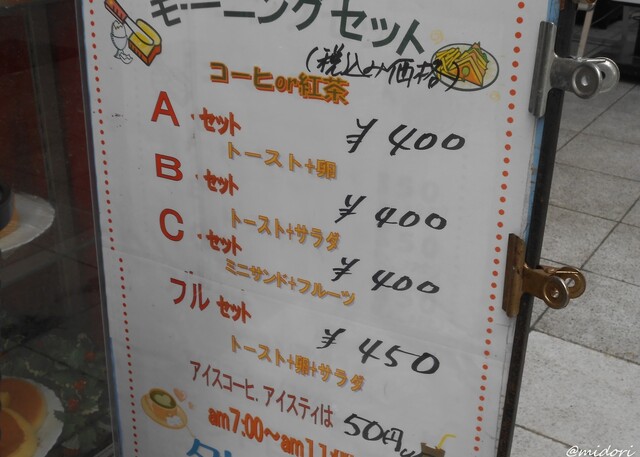 モーニングセット
(税込み価格)
コーヒor紅茶
A・セット ¥400
トースト+卵
B・セット ¥400
トースト+サラダ
C・セット ¥400
ミニサンド+フルーツ
フルセット ¥450
トースト+卵+サラダ
アイスコーヒ、アイスティは 50円
am7:00~am11
@midori